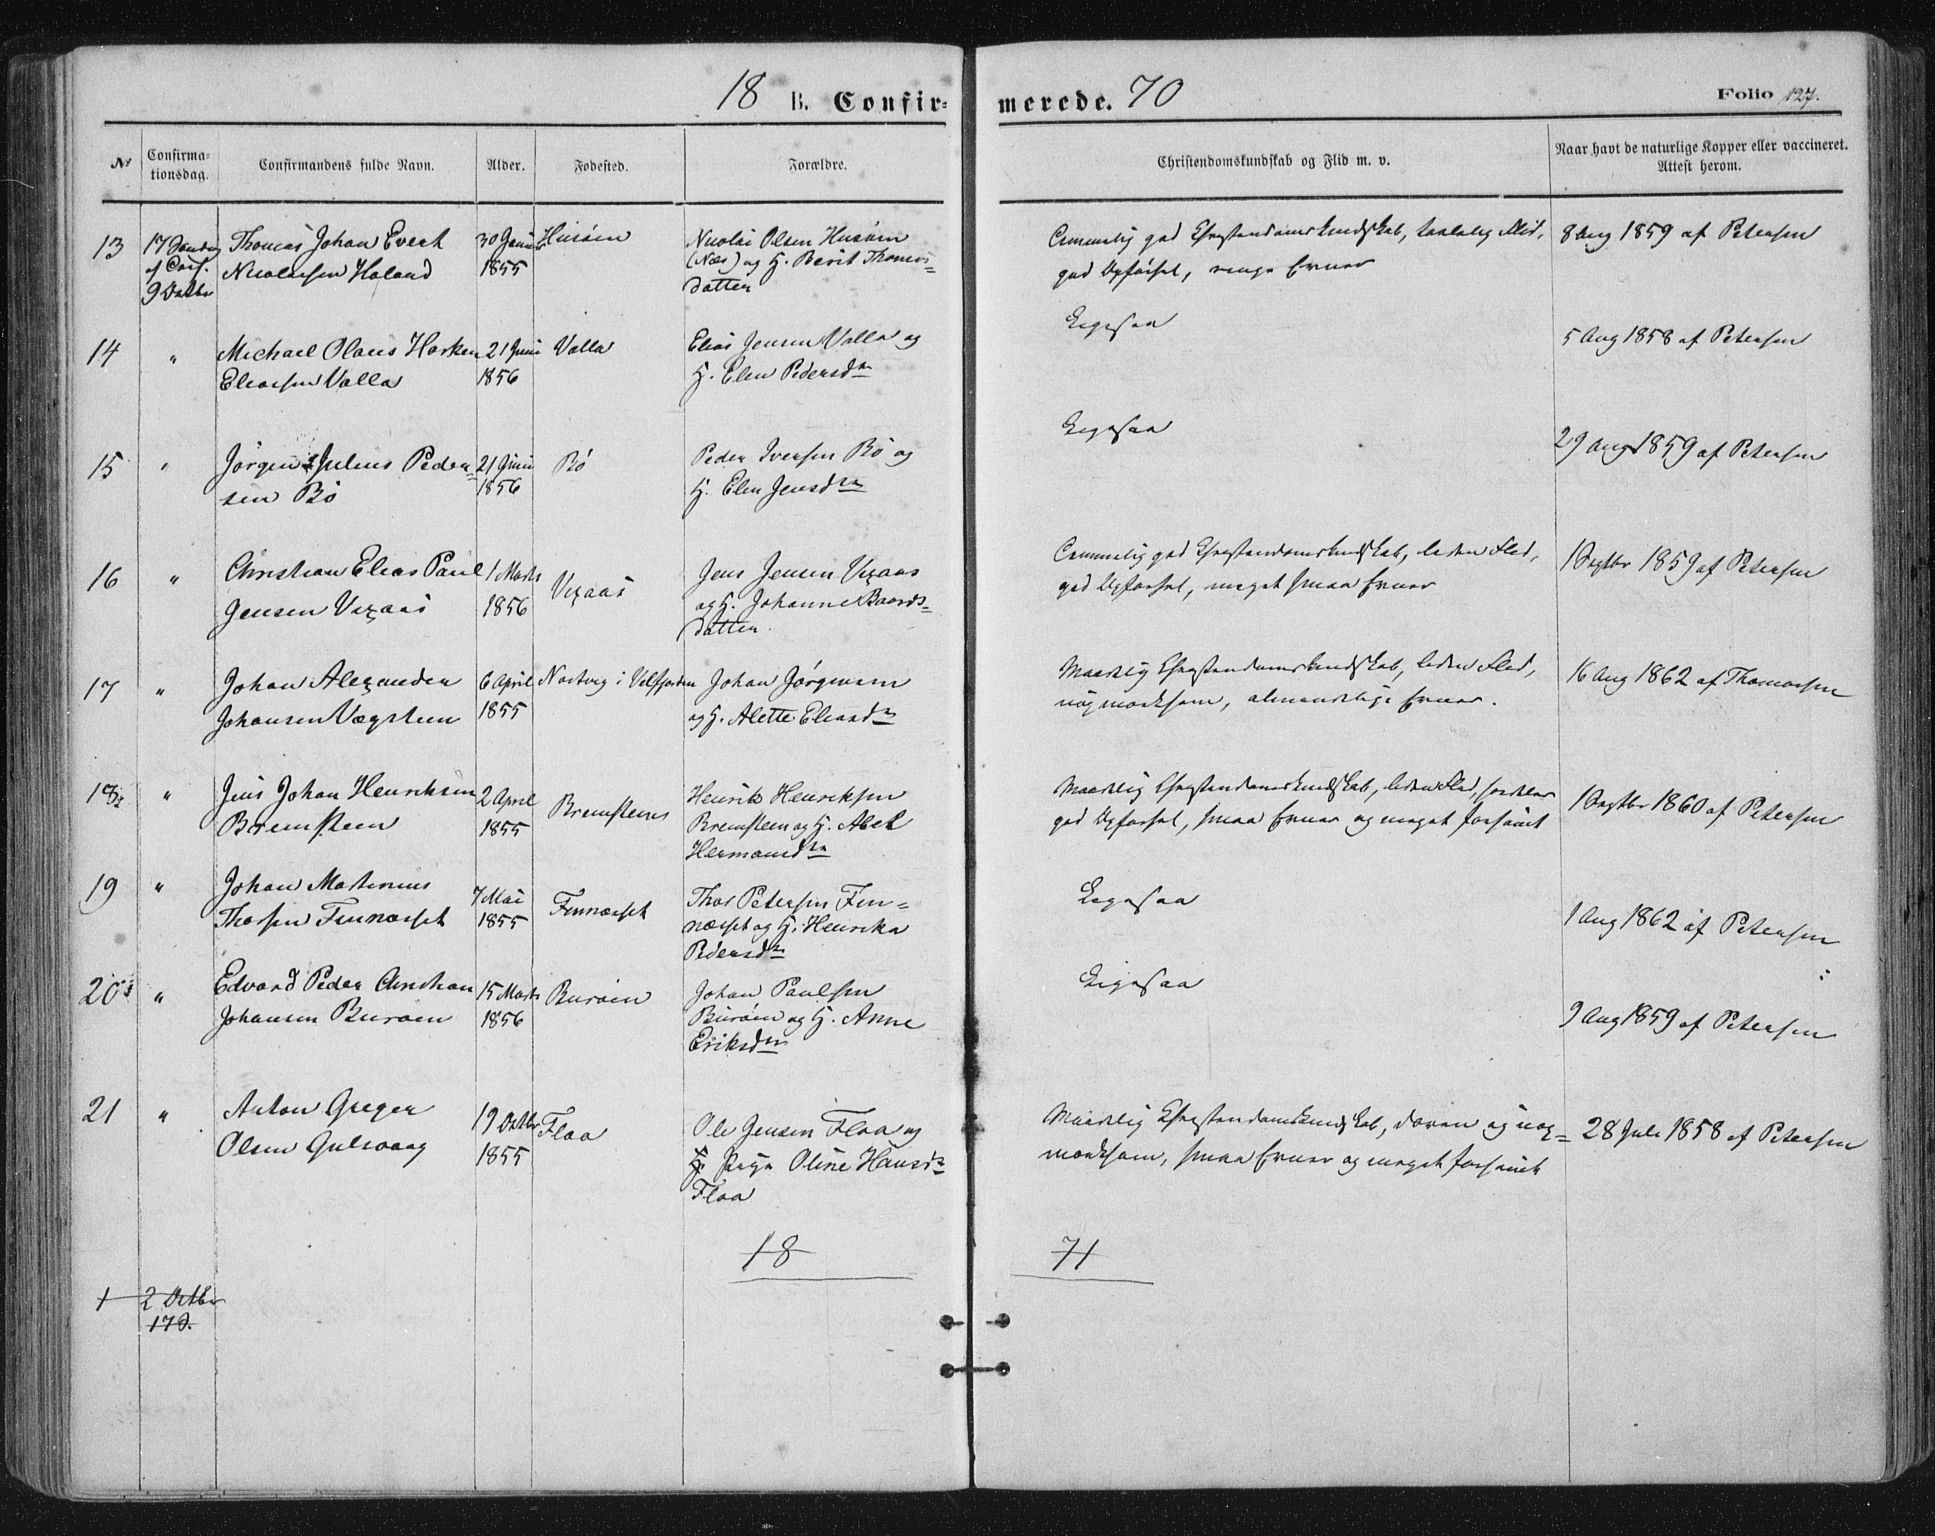 18 B. Confir- merede. 70
Folio 127.
No Confirmationsdag. Confirmandens fulde Navn. Alder. Fødested. Forældre. Christendomskundskab og Flid m. v. Naar havt de naturlige Kopper eller vaccineret. Attest herom.
13 17 Søndag
9 Octbr
Thomas Johan Evert
Nicolaisen Haland
30 Juni
1855
Husøen
Nicolai Olsen Husøen
(Næs) og H. Berit Thomas-
datter
god Christendomskundskab, taalelig Flid,
god Opførsel, ringe Evner
8 Aug 1859 af Petersen
14 "
Michael Olaus Horken
Eliassen Valla
21 Juni
1856
Valla
Elias Jensen Valla og
H. Elen Pedersdtr
Ligesaa
5 Aug 1858 af Petersen
15 "
Jørgen Julius Peder-
sen Bø
21 Juni
1856
Bø
Peder Iversen Bø og
H. Elen Jensdtr
Ligesaa
29 Aug 1859 af Petersen
16 "
Christian Elias Paul
Jensen Vexaas
1 Marts
1856
Vexaas
Jens Jensen Vexaas
og H. Johanne Baards-
datter.
god Christendomskundskab, liden Flid,
god Opførsel, meget smaa Evner
1 Septbr 1859 af Petersen
17 "
Johan Alexander
Johansen Vægsteen
6 April
1855
i Velfjorden
Johan Jørgensen
og H. Alette Eliasdtr
Maadelig Christendomskundskab, liden Flid,
uopmærksom, almindelige Evner.
16 Aug 1862 af Thomassen
18 "
Jens Johan Henriksen
Bremsteen
2 April
1855
Bremstenen
Henrik Henriksen
Bremsteen og H. Abel
Hermansdtr
Maadelig Christendomskundskab, liden Flid,
god Opførsel, smaa Evner og meget forsømt
1 Septbr 1860 af Petersen
19 "
Johan Martinus
Thorsen Finnæset
7 Mai
1855
Finnæset
Thor Petersen Fin-
næset og H. Henrika
Pedersdtr
Ligesaa
1 Aug 1862 af Petersen
20 "
Edvard Peder Christian
Johansen Burøen
15 Marts
1856
Burøen
Johan Paulsen
Burøen og H. Anne
Eriksdtr
Ligesaa
9 Aug 1859 af Petersen
21 "
Anton Greger
Olsen Gulsvaag
19 Octbr
1855
Floa
Ole Jensen Floa og
Pige Oline Hansdtr
Floa
Maadelig Christendomskundskab, doven og uop-
mærksom, smaa Evner og meget forsømt
28 Juli 1858 af Petersen
18 71
1 2 Octbr
17